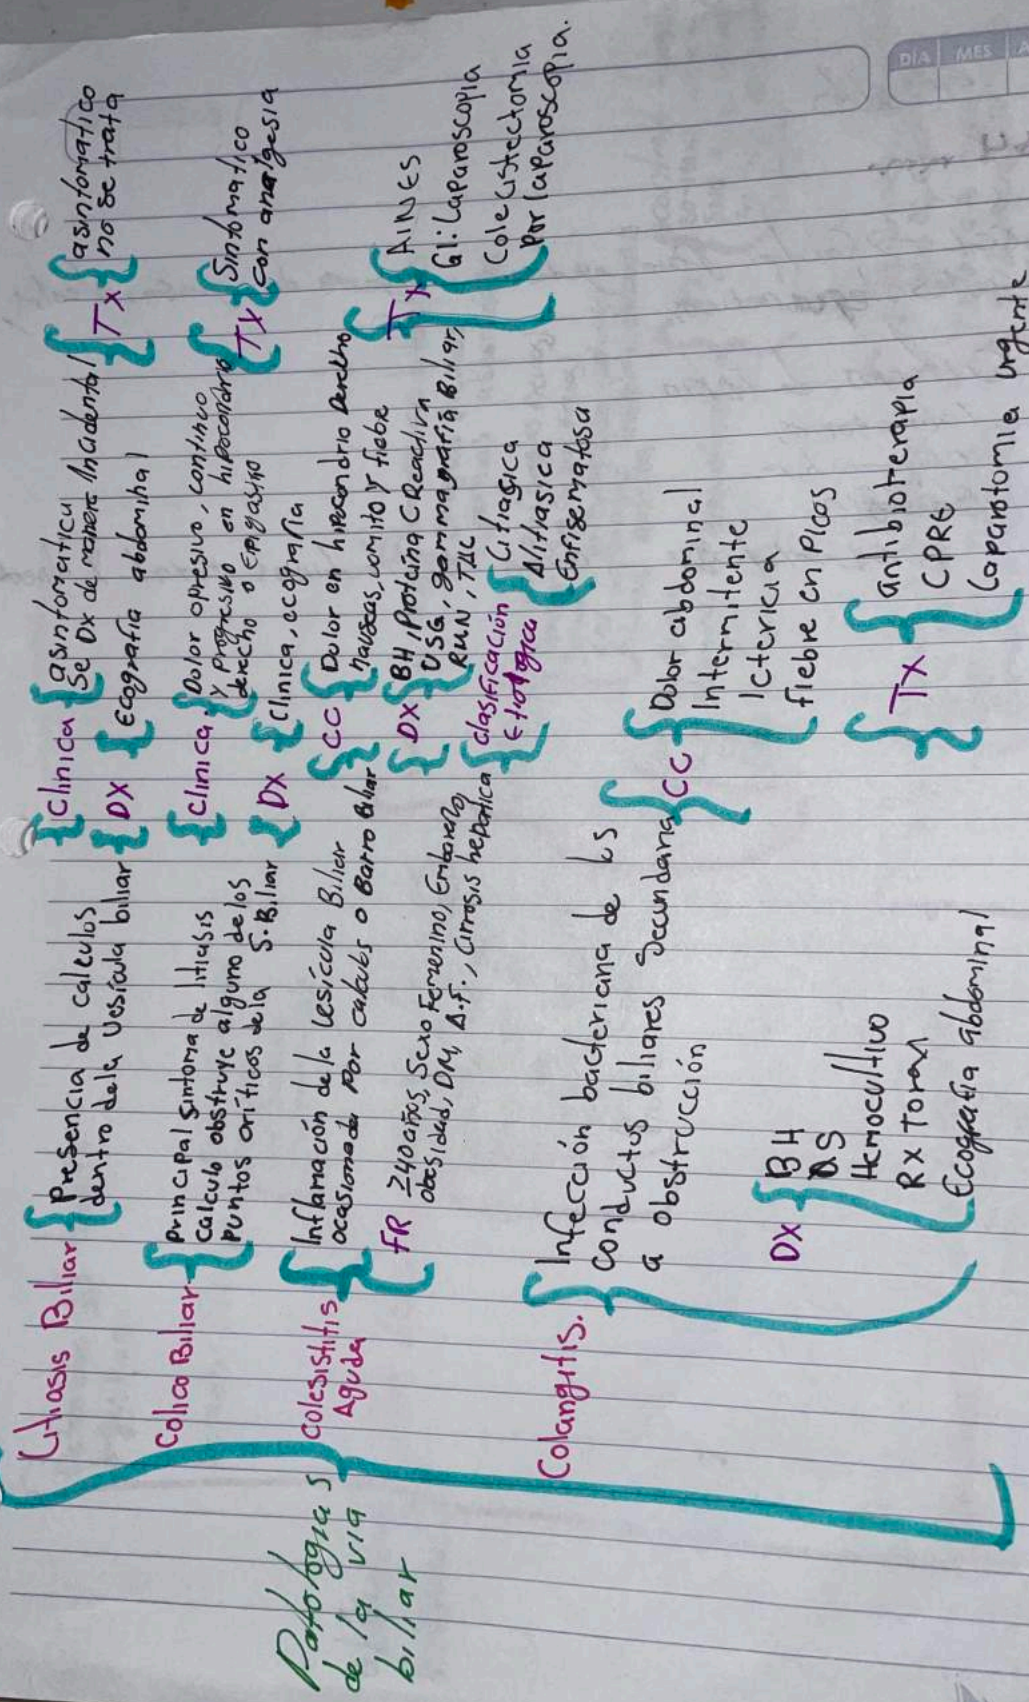 Patologias
de la via
biliar
Litiasis Biliar
Presencia de calculos
dentro dela vesícula biliar
Clinica
asintomatica
Se Dx de manera Incidental
DX
Ecografia abdominal
Tx
asintomatico
no se trata
Colico Biliar
Principal sintoma de litiasis
Calculo obstruye alguno de los
puntos criticos de la S. Biliar
Clinica
Dolor opresivo, continuo
y progresivo en hipocondrio
derecho o Epigastrio
DX
Clinica, ecografia
Tx
Sintomatico
con analgesia
Colesistitis
Aguda
Inflamación de la Vesícula Biliar
ocasionada por calculos o Barro Biliar
FR
≥40 años, Sexo Femenino, Embarazo,
obesidad, DM, A.F., Cirrosis hepatica
CC
Dolor en hipocondrio Derecho,
nauseas, vomito y fiebre
DX
BH, Proteína C Reactiva
USG, gamagrafia Biliar,
RMN, TAC
Clasificación
Etiologica
Litiasica
Alitiasica
Enfisematosa
Tx
AINES
G1: Laparoscopia
Colecistectomia
por laparoscopia.
Colangitis.
Infección bacteriana de los
conductos biliares Secundaria
a obstrucción
DX
BH
QS
Hemocultivo
Rx Torax
Ecografia abdominal
CC
Dolor abdominal
Intermitente
Ictericia
fiebre en Picos
Tx
antibioterapia
CPRE
Laparotomia urgente
DÍA
MES